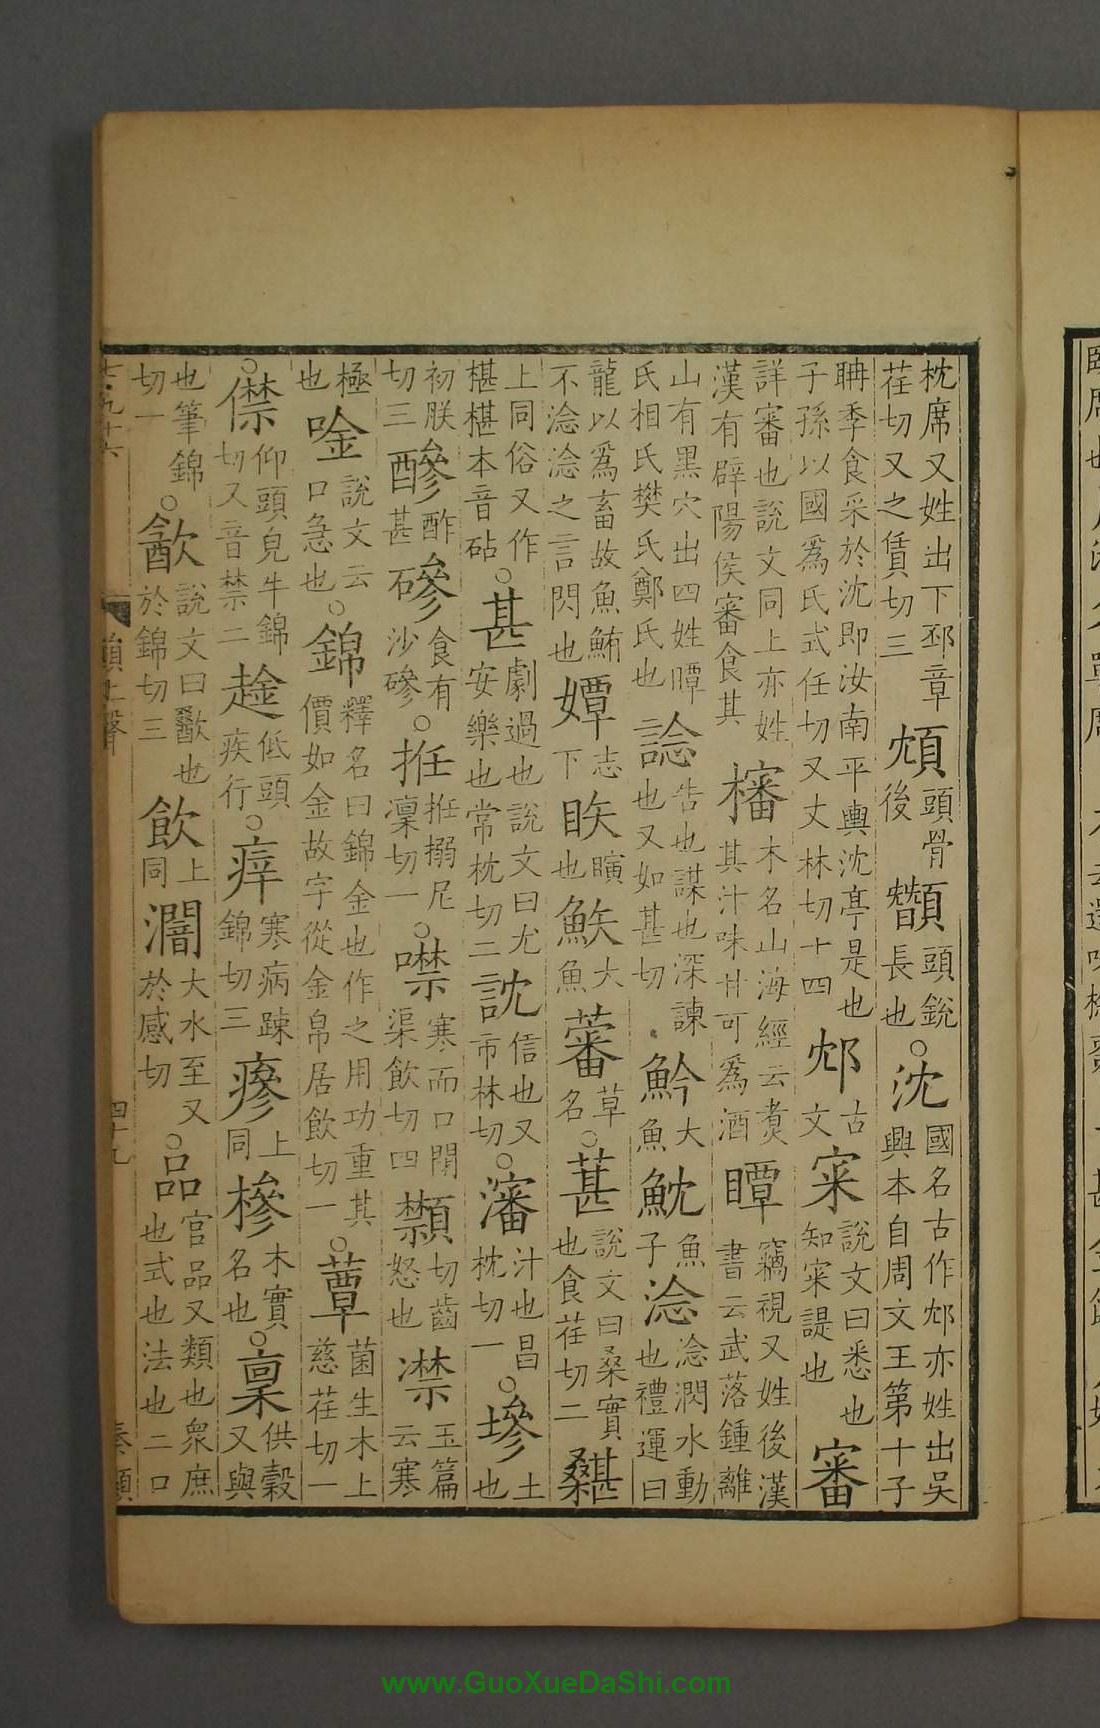 枕席又姓出下邳章荏切又之賃切三 䪴頭骨後 顲頭銳長也○沈國名古作邥亦姓出吳興本自周文王第十子
聃季食采於沈即汝南平輿沈亭是也子孫以國爲氏式任切又丈林切十四 邥古文 宷說文曰悉也知宷諟也 審
詳審也說文同上亦姓漢有辟陽侯審食其 㰂木名山海經云煑其汁味甘可爲酒 瞫竊視又姓後漢書云武落鍾離
山有黑穴出四姓瞫氏相氏樊氏鄭氏也 諗告也謀也深諫也又如甚切 魿大魚 魫魚子 淰淰潤水動也禮運曰
龍以爲畜故魚鮪不淰淰之言閃也 嬸志下 䀢瞚也 大魚 䕭草名○葚說文曰桑實也食荏切二 椹
上同俗又作椹椹本音砧○甚劇過也說文曰尤安樂也常枕切二 訦信也又市林切○瀋汁也昌枕切一○墋土也
初朕切三 醦酢甚 磣食有沙磣○拰拰搦尼凜切一○噤寒而口閉渠飲切四 顉切齒怒也 凚玉篇云寒
極也 唫說文云口急也○錦釋名曰錦金也作之用功重其價如金故字從金帛居飲切一○蕈菌生木上慈荏切一
○僸仰頭皃牛錦切又音禁二 趛低頭疾行○㾕寒病踈錦切三 瘮上同 槮木實名也○稟供穀又與
也筆錦切一○㱃說文曰歠也於錦切三 飲上同 濶大水至又於感切○品官品又類也衆庶也式也法也二口
四十九
www.GuoXueDaShi.com